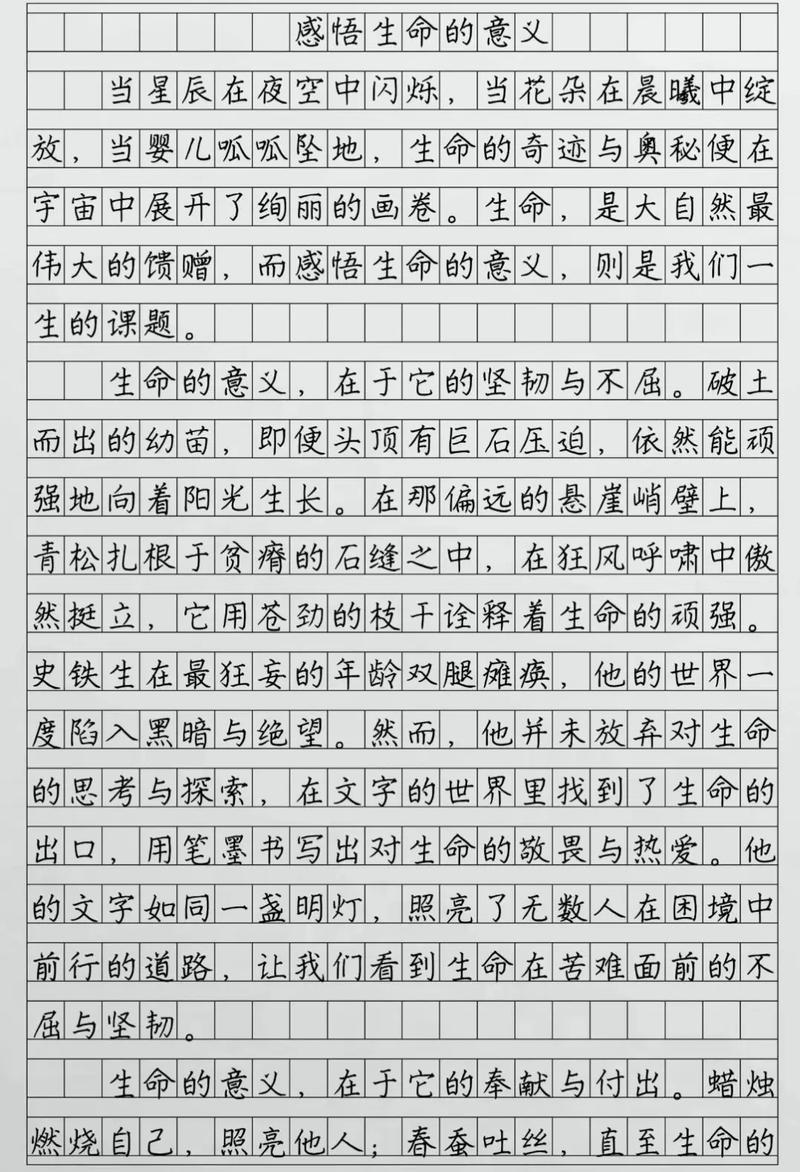 感悟生命的意义
当星辰在夜空中闪烁，当花朵在晨曦中绽
放，当婴儿呱呱坠地，生命的奇迹与奥秘便在
宇宙中展开了绚丽的画卷。生命，是大自然最
伟大的馈赠，而感悟生命的意义，则是我们一
生的课题。
生命的意义，在于它的坚韧与不屈。破土
而出的幼苗，即便头顶有巨石压迫，依然能顽
强地向着阳光生长。在那偏远的悬崖峭壁上，
青松扎根于贫瘠的石缝之中，在狂风呼啸中傲
然挺立，它用苍劲的枝干诠释着生命的顽强。
史铁生在最狂妄的年龄双腿瘫痪，他的世界一
度陷入黑暗与绝望。然而，他并未放弃对生命
的思考与探索，在文字的世界里找到了生命的
出口，用笔墨书写出对生命的敬畏与热爱。他
的文字如同一盏明灯，照亮了无数人在困境中
前行的道路，让我们看到生命在苦难面前的不
屈与坚韧。
生命的意义，在于它的奉献与付出。蜡烛
燃烧自己，照亮他人；春蚕吐丝，直至生命的